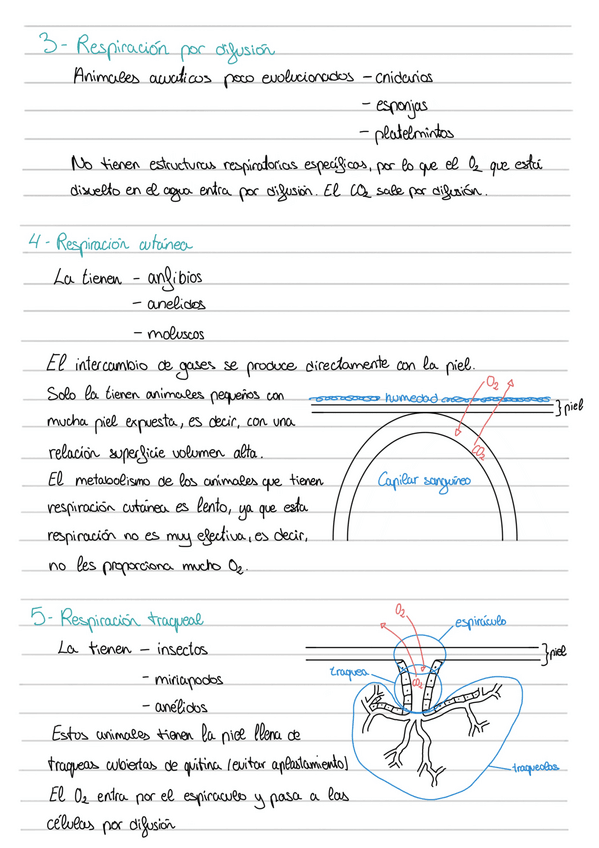 3- Respiración por difusión
Animales acuáticos poco evolucionados - cnidarios
- esponjas
- platelmintos
No tienen estructuras respiratorias específicas, por lo que el O₂ que está
disuelto en el agua entra por difusión. El CO₂ sale por difusión.
4- Respiración cutánea
La tienen - anfibios
- anelidos
- moluscos
El intercambio de gases se produce directamente con la piel.
Solo la tienen animales pequeños con
mucha piel expuesta, es decir, con una
relación superficie volumen alta.
El metabolismo de los animales que tienen
respiración cutánea es lento, ya que esta
respiración no es muy efectiva, es decir,
no les proporciona mucho O₂.
O₂
humedad
piel
CO₂
Capilar sanguíneo
5- Respiración traqueal
La tienen - insectos
- miriapodos
- anélidos
Estos animales tienen la piel llena de
traqueas cubiertas de quitina (evitar aplastamiento)
El O₂ entra por el espiraculo y pasa a las
células por difusión
O₂
espiráculo
piel
traquea
CO₂
traqueolas